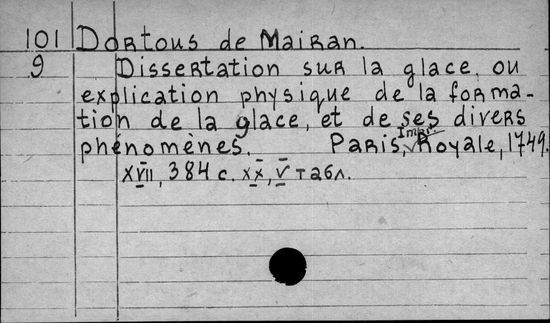 101 Dortous de Mairan.
9 Dissertation sur la glace, ou
explication physique de la forma-
tion de la glace, et de ses divers
phénomènes. Paris, Impr. Royale, 1749.
XVII, 384 c. XX, V табл.